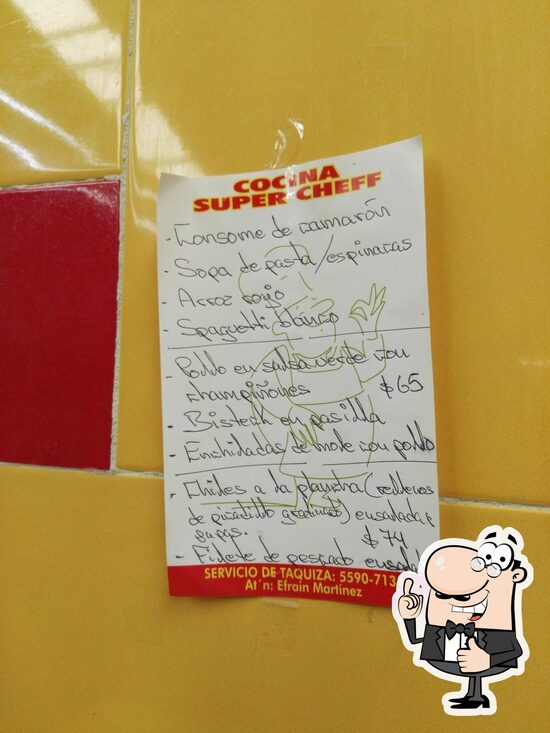 COCINA
SUPER CHEFF
- Consome de camarón
- Sopa de pasta/espinacas
- Arroz rojo
- Spaguetti blanco
- Pollo en salsa verde con
champiñones $65
- Bisteck en pasilla
- Enchiladas de mole con pollo
- Chiles a la plancha (rellenos
de picadillo gratinado) ensalada y
papas. $74
- Filete de pescado
SERVICIO DE TAQUIZA: 5590-713
At´n: Efrain Martínez